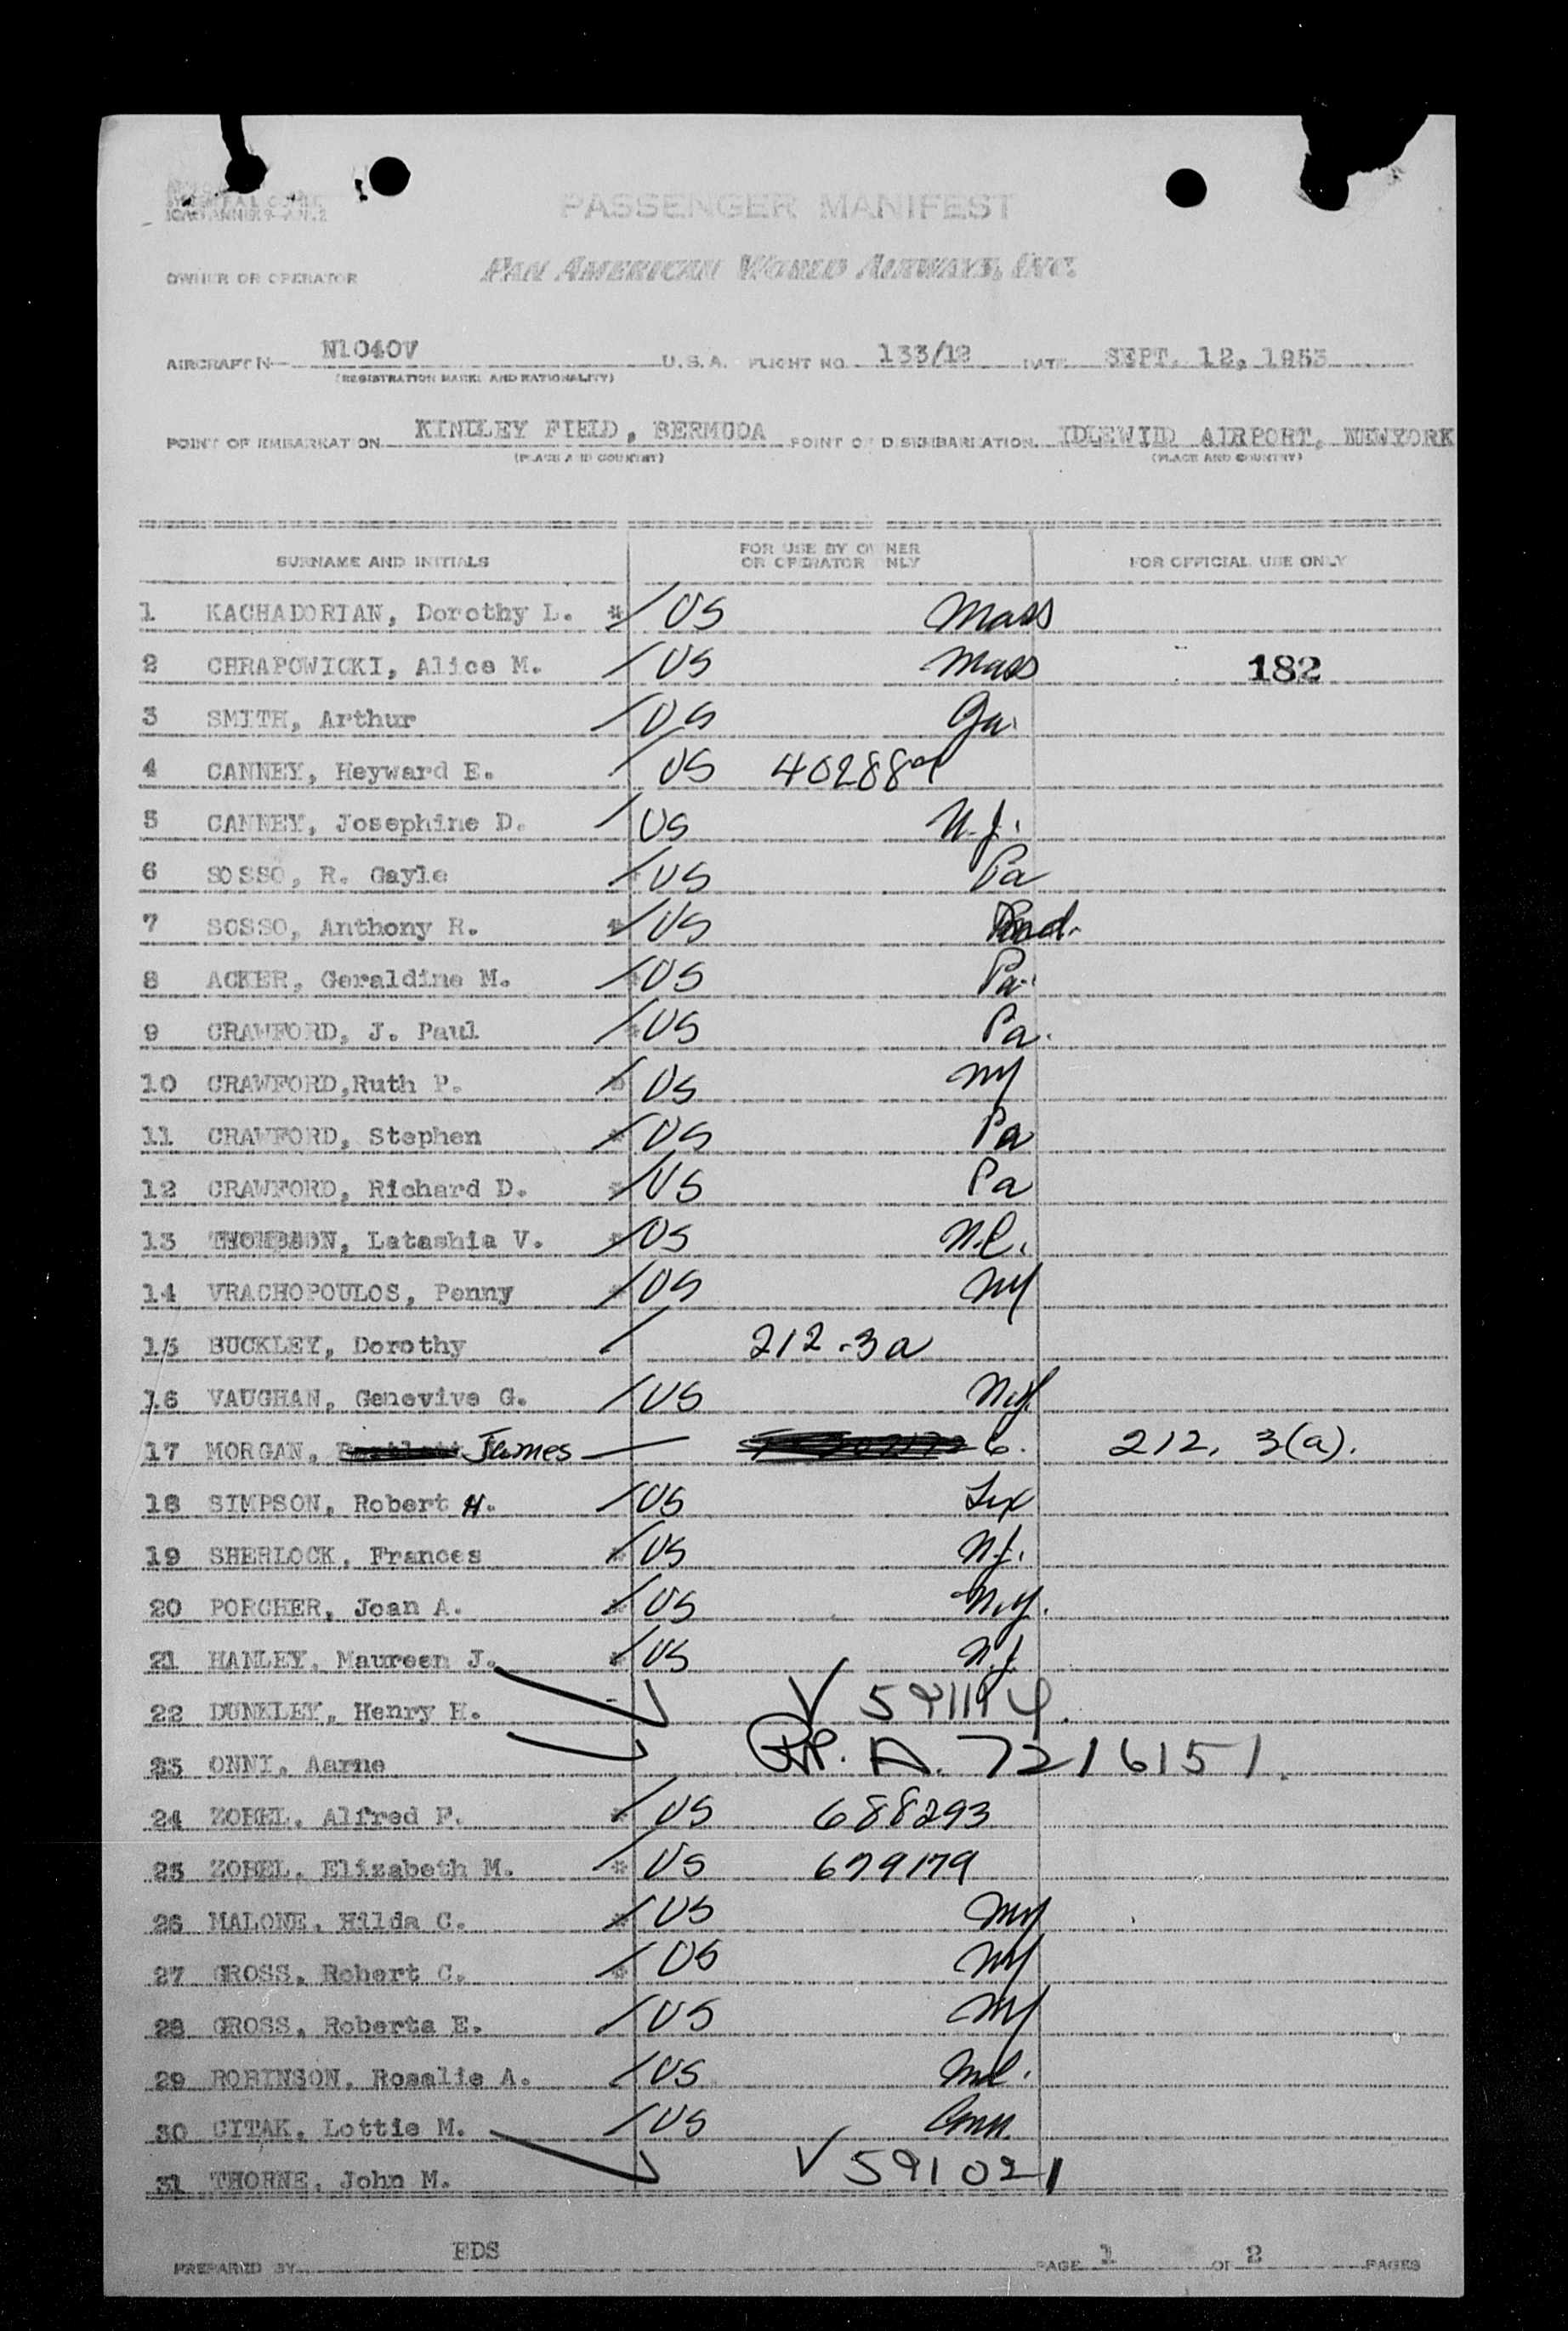 PASSENGER MANIFEST
OWNER OR OPERATOR PAN AMERICAN WORLD AIRWAYS, INC.
AIRCRAFT N N1040V U.S.A. FLIGHT NO. 133/12 DATE SEPT. 12, 1953
(REGISTRATION MARKS AND NATIONALITY)
POINT OF EMBARKATION KINDLEY FIELD, BERMUDA POINT OF DISEMBARKATION IDLEWILD AIRPORT, NEWYORK
(PLACE AND COUNTRY) (PLACE AND COUNTRY)
SURNAME AND INITIALS FOR USE BY OWNER OR OPERATOR ONLY FOR OFFICIAL USE ONLY
1 KACHADORIAN, Dorothy L. * / US Mass
2 CHRAPOWICKI, Alice M. / US Mass 182
3 SMITH, Arthur / US Ga.
4 CANNEY, Heyward E. / US 40288
5 CANNEY, Josephine D. / US N.J.
6 SOSSO, R. Gayle / US Pa
7 SOSSO, Anthony R. * / US Ind.
8 ACKER, Geraldine M. * / US Pa.
9 CRAWFORD, J. Paul * / US Pa.
10 CRAWFORD,Ruth P. * / US NY
11 CRAWFORD, Stephen * / US Pa
12 CRAWFORD, Richard D. * / US Pa
13 THOMPSON, Latashia V. * / US N.C.
14 VRACHOPOULOS, Penny * / US NY
15 BUCKLEY, Dorothy / 212-3a
16 VAUGHAN, Genevive G. / US N.Y.
17 MORGAN, James — 6. 212, 3(a).
18 SIMPSON, Robert H. / US Tex
19 SHERLOCK, Frances * / US N.J.
20 PORCHER, Joan A. * / US N.Y.
21 HANLEY, Maureen J. * / US N.J.
22 DUNKLEY, Henry H. √
23 ONNI, Aarne A. 7216151.
24 ZOBEL, Alfred F. * / US 688293
25 ZOBEL, Elizabeth M. * / US 679179
26 MALONE, Hilda C. * / US NY
27 GROSS, Robert C. * / US NY
28 GROSS, Roberta E. / US NY
29 ROBINSON, Rosalie A. / US
30 CITAK, Lottie M. / US Conn.
31 THORNE, John M. √ 591021
PREPARED BY EDS PAGE 1 OF 2 PAGES